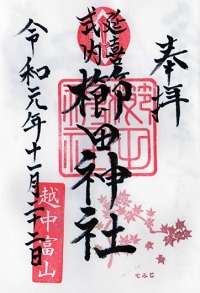 奉拝
延喜
式内
櫛田神社
令和元年十一月二十二日
越中富山
もみじ